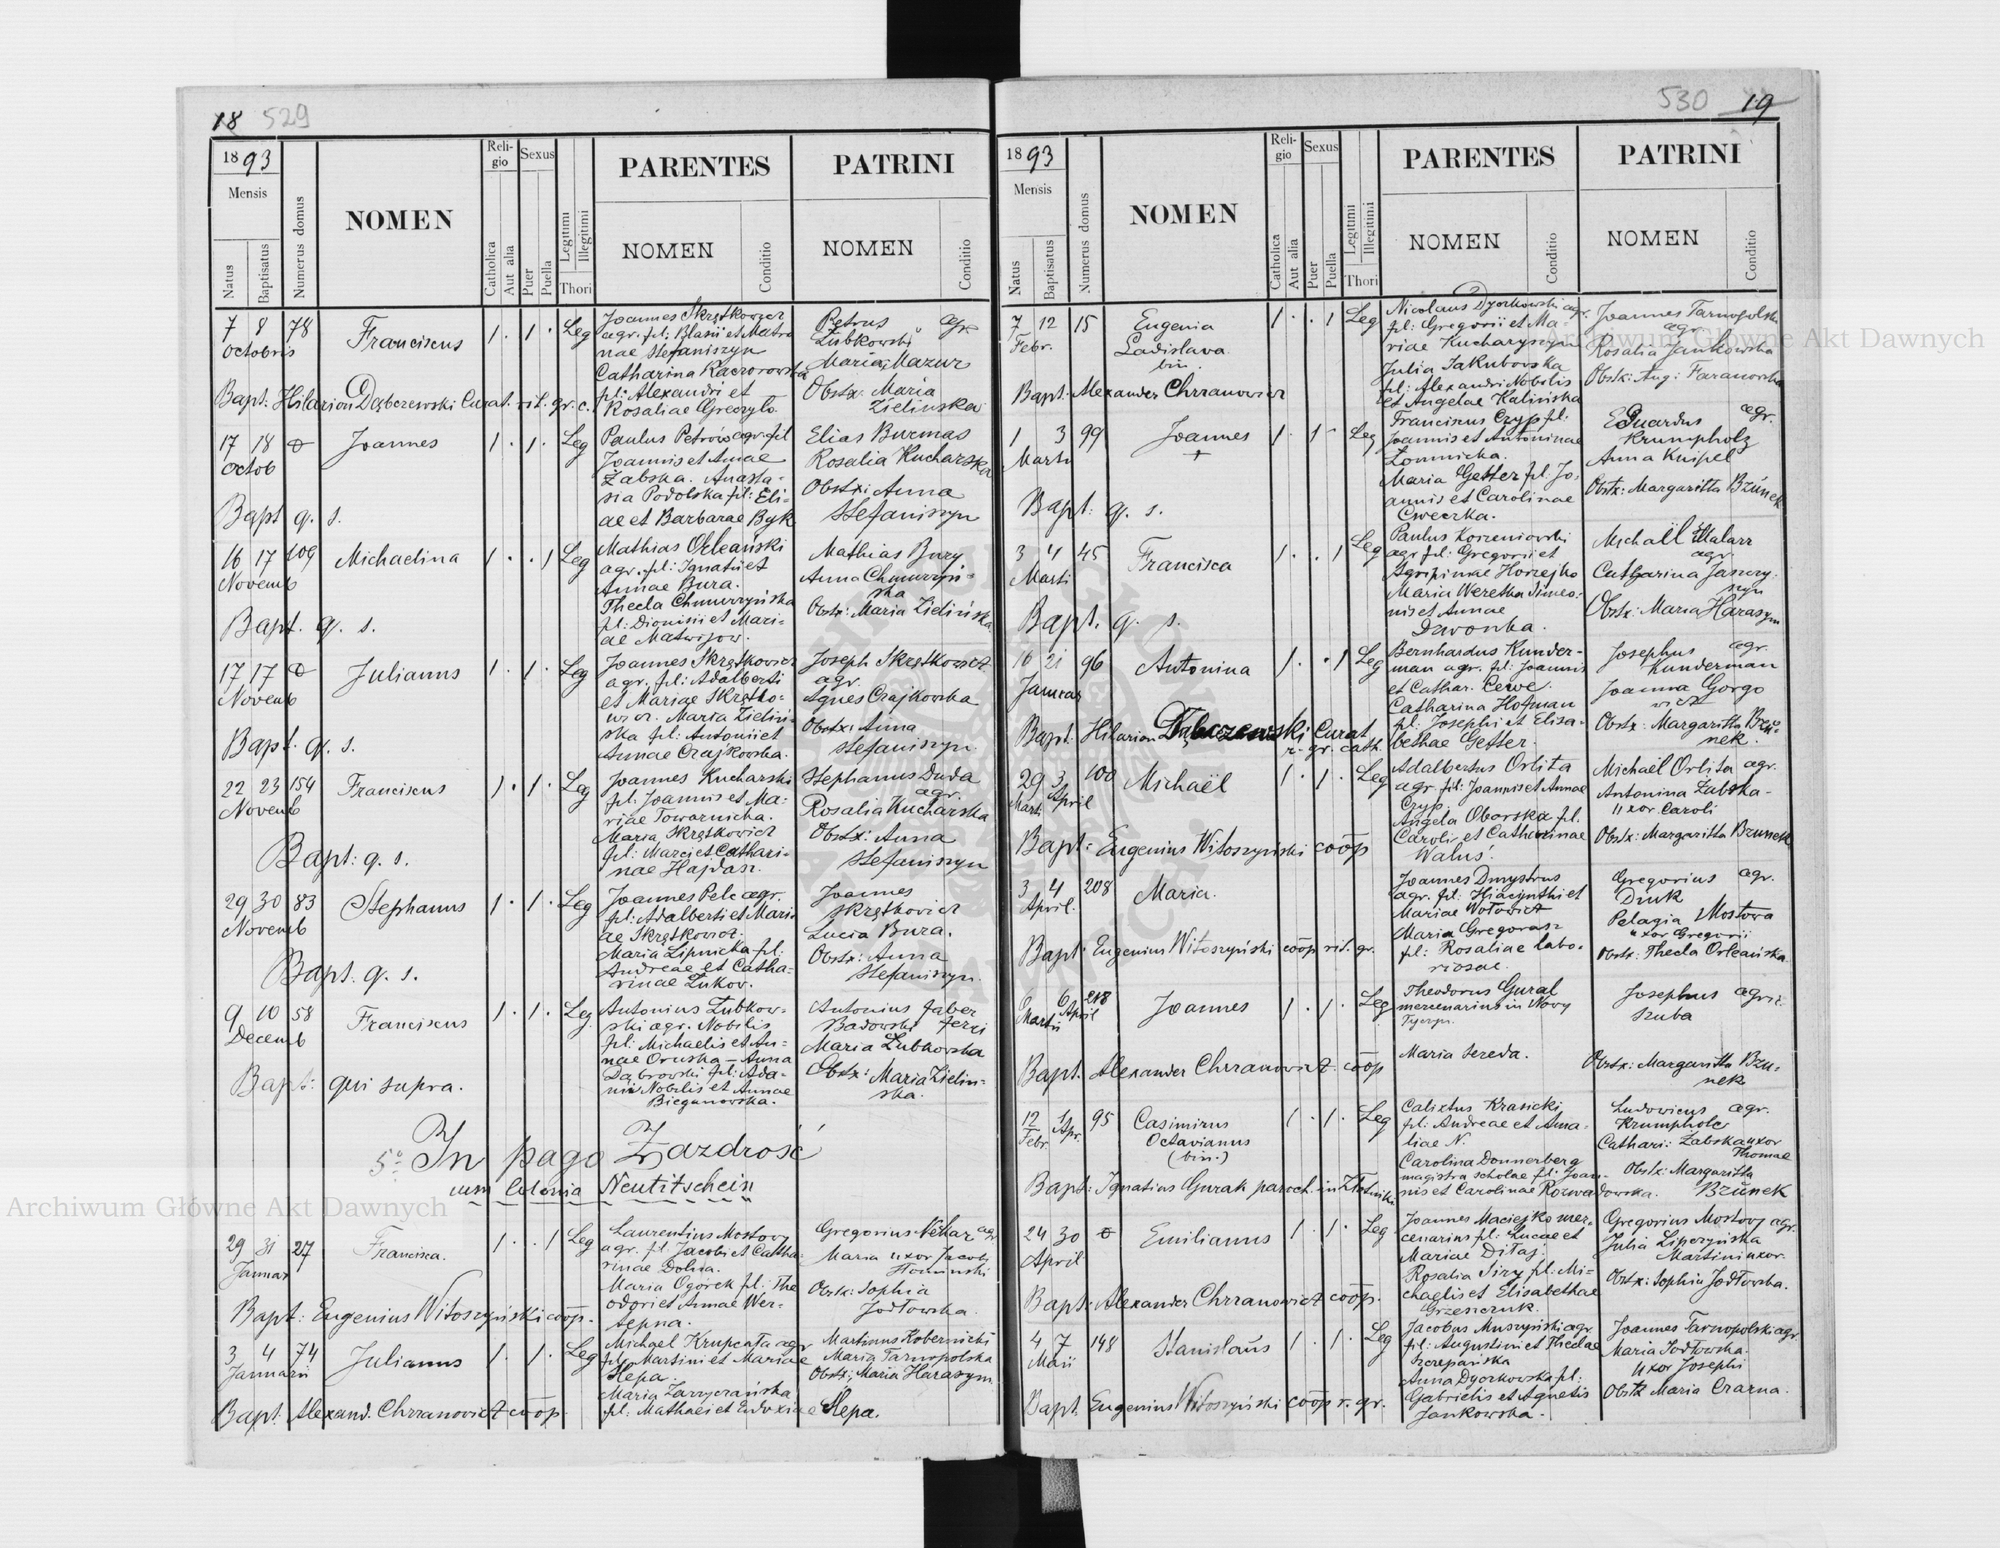 18 529
1893
Mensis
Natus
Baptisatus
Numerus domus
NOMEN
Reli-
gio
Catholica
Aut alia
Sexus
Puer
Puella
Legitimi
Illegitimi
Thori
PARENTES
NOMEN
Conditio
PATRINI
NOMEN
Conditio
7 8 78
Octobris
Franciscus
1 . 1 . Leg
Joannes Skrętkowicz
agr. fil: Blasii et Matro
nae Stefaniszyn
Catharina Kaczorowska
fil: Alexandri et
Rosaliae Greczyło
Petrus agr
Zubkowski
Maria Mazur
Obstx: Maria
Zielinska
Bapt. Hilarion Dąbczewski Curat. rit. gr. c.
17 18
Octob
Joannes
1 . 1 . Leg
Paulus Petrów agr. fil
Joannis et Annae
Żabska. Anasta-
sia Podolska fil: Eli-
ae et Barbarae Byk
Elias Burmas
Rosalia Kucharska
Obstx: Anna
Stefaniszyn
Bapt q. s.
16 17 109
Novemb
Michaelina
1 . . 1 Leg
Mathias Orleański
agr. fil: Ignatii et
Annae Bura.
Thecla Chmurzyńska
fil: Dionisii et Mari-
ae Matwijow.
Mathias Bury
Anna Chmurzyń-
ska
Obstx: Maria Zielińska
Bapt. q. s.
17 17
Novemb
Julianus
1 . 1 . Leg
Joannes Skrętkowicz
agr. fil: Adalberti
et Mariae Skrętko-
wicz. Maria Zieliń-
ska fil: Antonii et
Annae Czajkowska.
Joseph Skrętkowicz
agr.
Agnes Czajkowska
Obstx: Anna
Stefaniszyn
Bapt. q. s.
22 23 154
Novemb
Franciscus
1 . 1 . Leg
Joannes Kucharski
fil: Joannis et Ma:
riae Towarnicka.
Maria Skrętkowicz
fil: Marci et Cathari-
nae Hajdasz.
Stephanus Duda
agr.
Rosalia Kucharska
Obstx: Anna
Stefaniszyn
Bapt: q. s.
29 30 83
Novemb
Stephanus
1 . 1 . Leg
Joannes Pelc agr.
fil: Adalberti et Mari-
ae Skrętkowicz.
Maria Lipnicka fil:
Andreae et Catha-
rinae Żukow.
Joannes
Skrętkowicz
Lucia Bura.
Obstx: Anna
Stefaniszyn.
Bapt. q. s.
9 10 58
Decemb
Franciscus
1 . 1 . Leg
Antonius Zubkow-
ski agr. Nobilis
fil: Michaelis et An-
nae Oruska - Anna
Dąbrowski fil: Ada-
mi Nobilis et Annae
Bieganowska.
Antonius faber
Badowski ferri
Maria Zubkowska
Obstx: Maria Zielin-
ska.
Bapt: qui supra.
5o: In pago Zazdrość
cum Colonia Neutitschein
29 31 27
Januar
Francisca.
1 . . 1 Leg
Laurentius Mostowy
agr. fil Jacobi et Catha-
rinae Dolna.
Maria Ogórek fil: The
odori et Annae Wer-
tepna.
Gregorius Nekar agr
Maria uxor Jacobi
Słominski
Obstx: Sophia
Jodłowska.
Bapt: Eugenius Witoszyński coop.
3 4 74
Januarii
Julianus
1 . 1 . Leg
Michael Krupcała agr
fil: Martini et Mariae
Slepa.
Maria Zawyczańska
fil: Mathaei et Eudoxiae Slepa.
Martinus Kobernicki
Maria Tarnopolska
Obstx: Maria Harasym
Bapt. Alexand. Chrzanowicz coop.
530 19
1893
Mensis
Natus
Baptisatus
Numerus domus
NOMEN
Reli-
gio
Catholica
Aut alia
Sexus
Puer
Puella
Legitimi
Illegitimi
Thori
PARENTES
NOMEN
Conditio
PATRINI
NOMEN
Conditio
7 12 15
Febr.
Eugenia
Ladislava
bin.
1 . . 1 Leg
Nicolaus Dyorkowski agr.
fil: Gregorii et Ma-
riae Kucharyszyn
Julia Jakubowska
fil: Alexandri Nobilis
et Angelae Kalińska
Joannes Tarnopolski
agr
Rosalia Jankowska
Obstx: Ang: Faranowska
Bapt. Alexander Chrzanowicz
1 3 99
Martii
Joannes
+
1 . 1 . Leg
Franciscus Czyp fil.
Joannis et Antoninae
Łomnicka.
Maria Getter fil. Jo-
annis et Carolinae
Cweczka.
Eduardus agr.
Krumpholz
Anna Knipel
Obstx: Margaritta Brünek
Bapt: q. s.
3 4 45
Marti
Francisca
1 . . 1 Leg
Paulus Korzeniowski
agr fil: Gregorii et
Agripinae Horzejko
Maria Weretka Simeo-
nis et Annae
Dzwonka.
Michaël Malarz
agr.
Catharina Jaszczy-
szyn
Obstx: Maria Harasym
Bapt. q. s.
16 21 96
Januar
Antonina
1 . . 1 Leg
Bernhardus Kunder-
man agr. fil: Joannis
et Cathar. Cewe.
Catharina Hofman
fil: Josephi et Elisa-
bethae Getter.
Josephus agr.
Kunderman
Joanna Gorgo
wicz
Obstx: Margaritta Brü-
nek.
Bapt: Hilarion Dąbczewski Curat
r. gr. cath.
29 3 100
Marti April
Michaël
1 . 1 . Leg
Adalbertus Orlita
agr fil: Joannis et Annae
Czyp
Angela Oborska fil.
Caroli et Catharinae
Waluś.
Michaël Orlita agr.
Antonina Żabska -
uxor Caroli
Obstx: Margaritta Brunek
Bapt: Eugenius Witoszyński coop
3 4 208
April.
Maria.
Joannes Dmystrus
agr. fil: Hiacynthi et
Mariae Wołowicz
Maria Gregorasz
fil: Rosaliae labo-
riosae.
Gregorius agr.
Druk
Pelagia Mostowa
uxor Gregorii
Obstx: Thecla Orleańska
Bapt. Eugenius Witoszyński coop rit. gr.
6 218
Martii April
Joannes
1 . 1 . Leg
Theodorus Gural
mercenarius in Nowy
Maria Sereda.
Josephus agri.
Szuba
Obstx: Margaritta Brü-
nek
Bapt. Alexander Chrzanowicz coop
12 1 95
Febr. Apr.
Casimirus
Octavianus
(bin.)
1 . 1 . Leg
Calixtus Krasicki
fil: Andreae et Ama-
liae N.
Carolina Donnerberg
magistra scholae fil: Joan-
nis et Carolinae Rozwadowska.
Ludovicus agr.
Krumpholc
Cathari: Żabska uxor
Thomae
Obstx: Margaritta
Brünek
Bapt: Ignatius Gurak paroch. in Złotniki
24 30
April
Emilianus
1 . 1 . Leg
Joannes Maciejko mer-
cenarius fil: Lucae et
Mariae Diłaj.
Rosalia Siry fil: Mi-
chaelis et Elisabethae
Grzesiczuk.
Gregorius Mostowy agr.
Julia Lipczyńska
Martini uxor.
Obstx: Sophia Jodłowska.
Bapt: Alexander Chrzanowicz coop.
4 7 148
Maii
Stanislaus
1 . 1 . Leg
Jacobus Muszyński agr.
fil: Augustini et Theclae
Szczepańska
Anna Dyorkowska fil:
Gabrielis et Agnetis
Jankowska.
Joannes Tarnopolski agr.
Maria Jodłowska.
uxor Josephi
Obstx Maria Czarna.
Bapt. Eugenius Witoszyński coop r. gr.
Archiwum Główne Akt Dawnych
Archiwum Główne Akt Dawnych